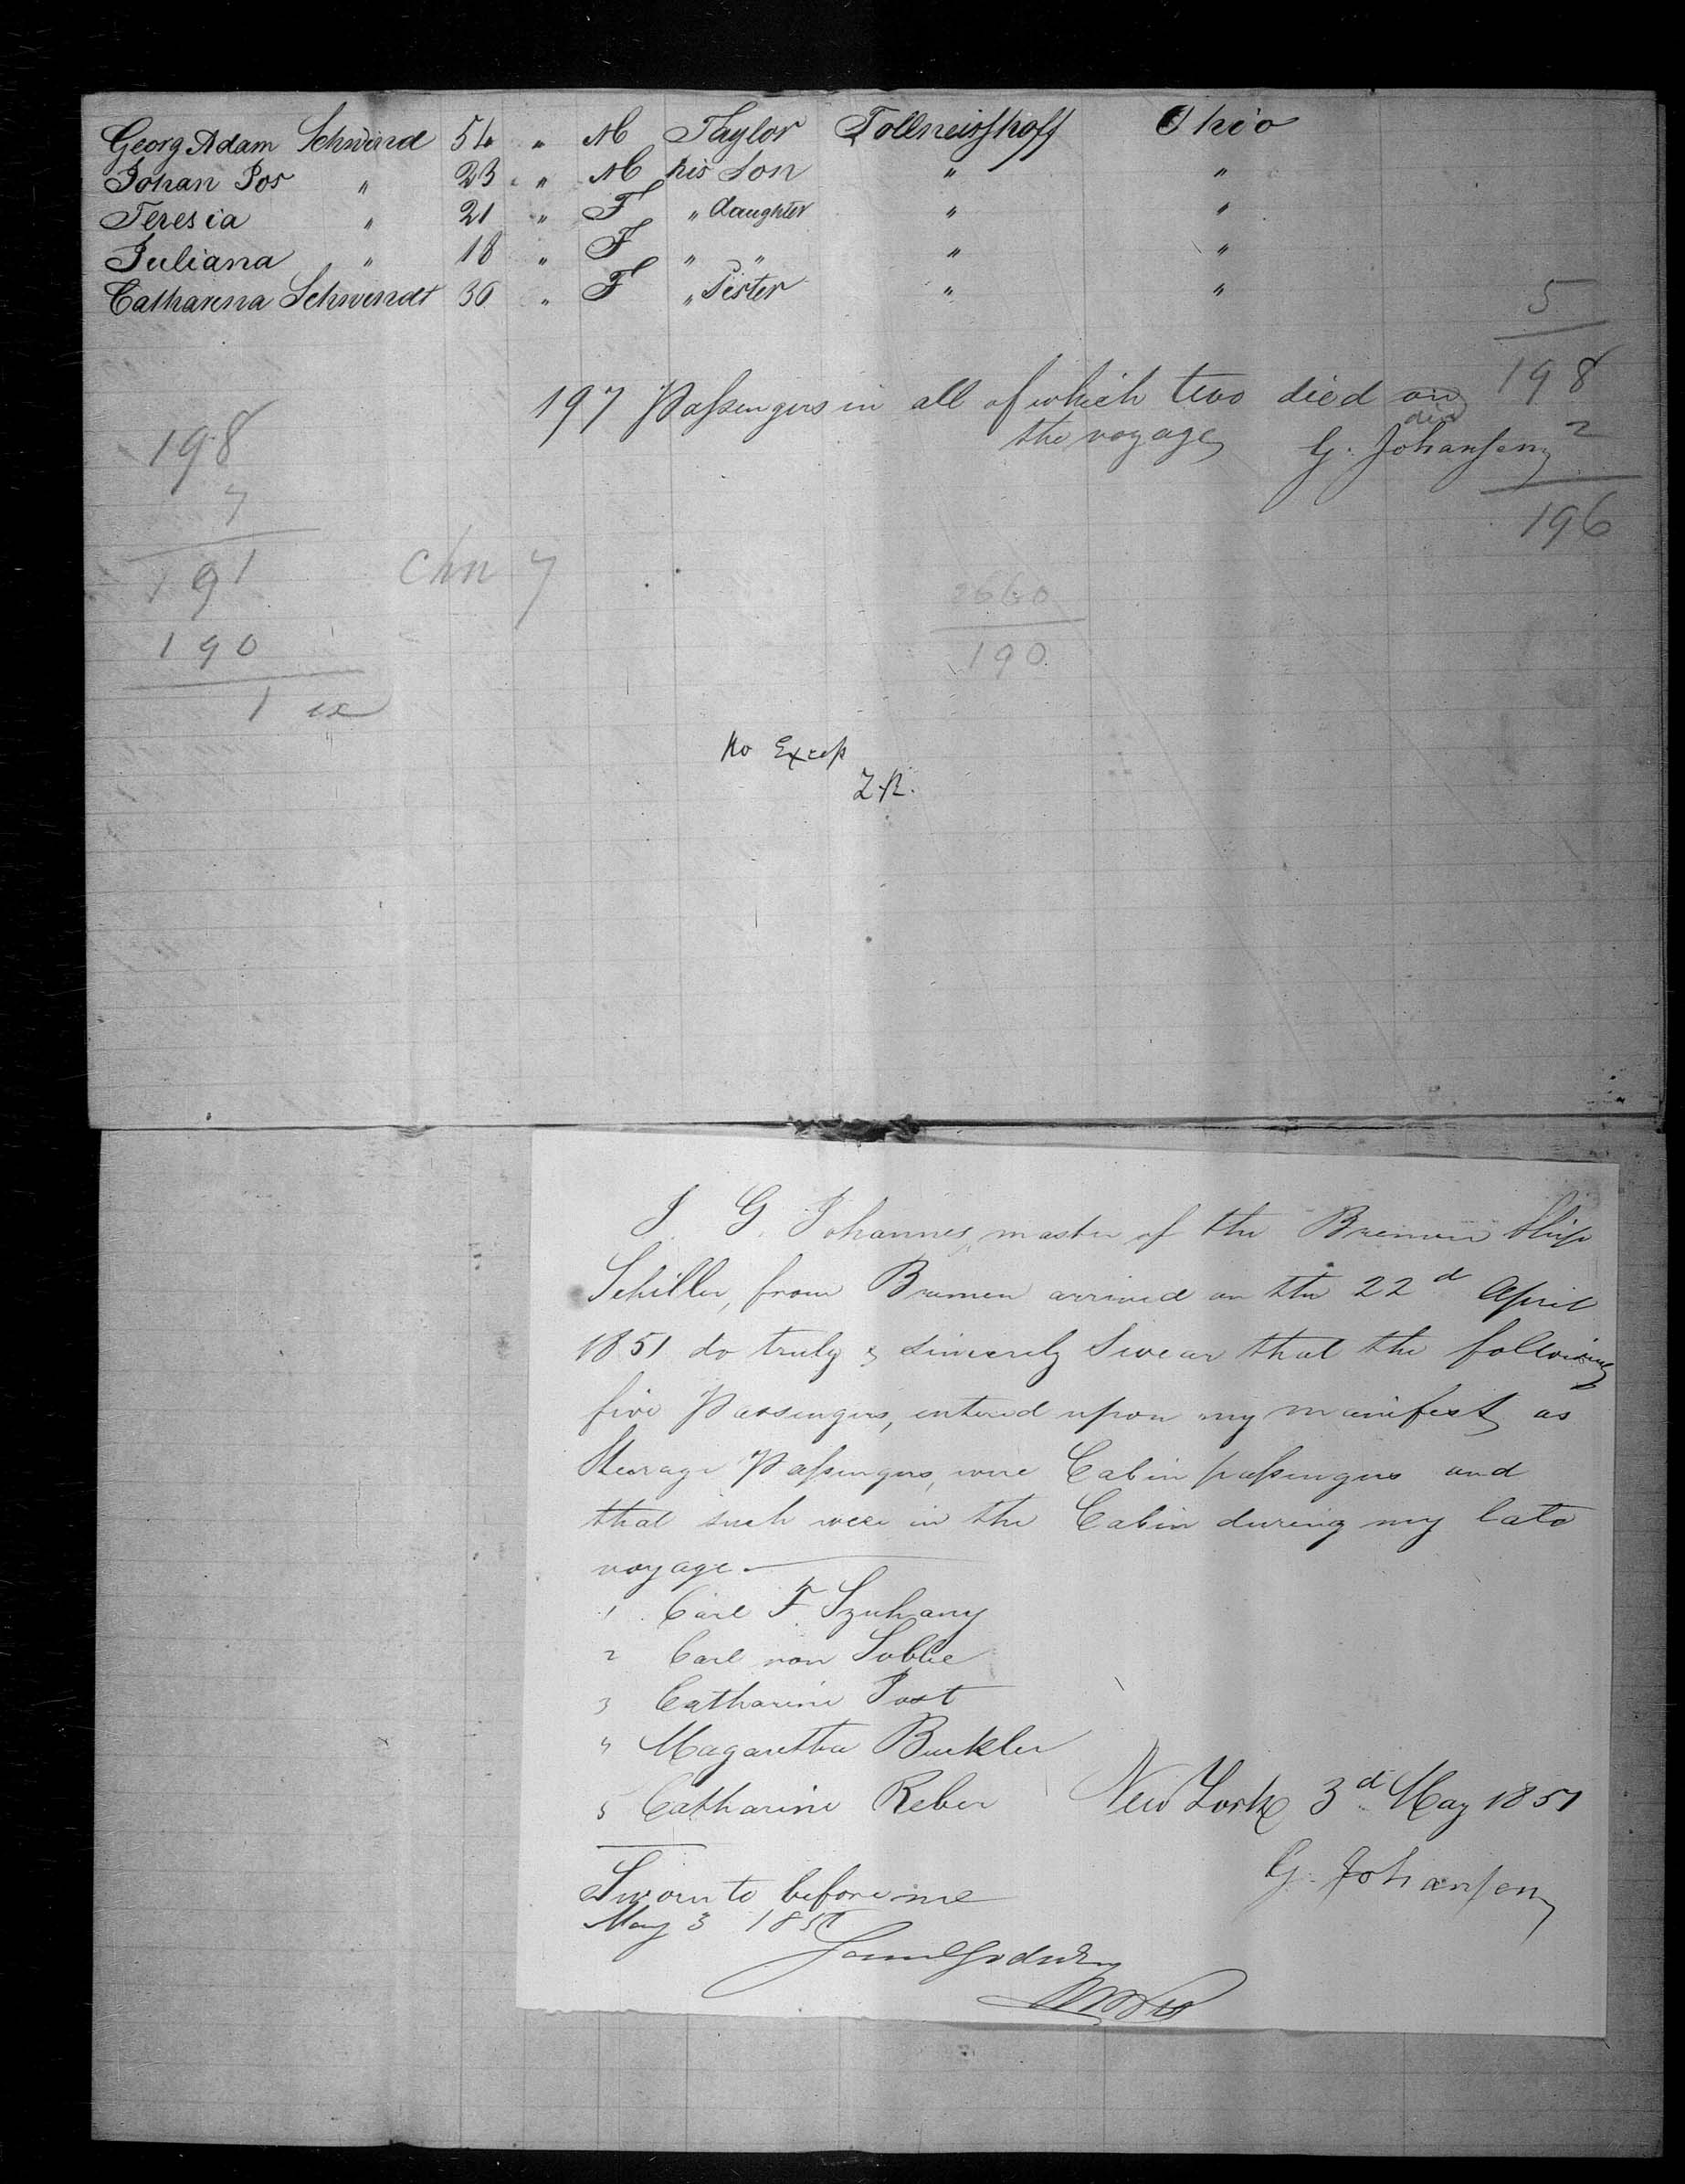 Georg Adam Schwind 54 " M Taylor Tollneishoff Ohio
Johan Jos " 23 " M his Son " "
Teresia " 21 " F " daughter " "
Juliana " 18 " F " " " "
Catharina Schwindt 36 " F " Sister " "
5
198
197 Passengers in all of which two died on
the voyage
died 2
G. Johansen
196
198
7
191
190
1 ex
Chn 7
2660
190
No Excep
I, G. Johannes, master of the Bremen Ship
Schiller, from Bremen arrived on the 22d April
1851 do truly & sincerely Swear that the following
five Passengers, entered upon my manifest as
Steerage Passengers, were Cabin passengers and
that such were in the Cabin during my late
voyage.
1 Carl F Szuhany
2 Carl von
3 Catharine Post
4 Magaretha Buckler
5 Catharine Reber
New York 3d May 1851
G. Johansen
Sworn to before me
May 3 1851